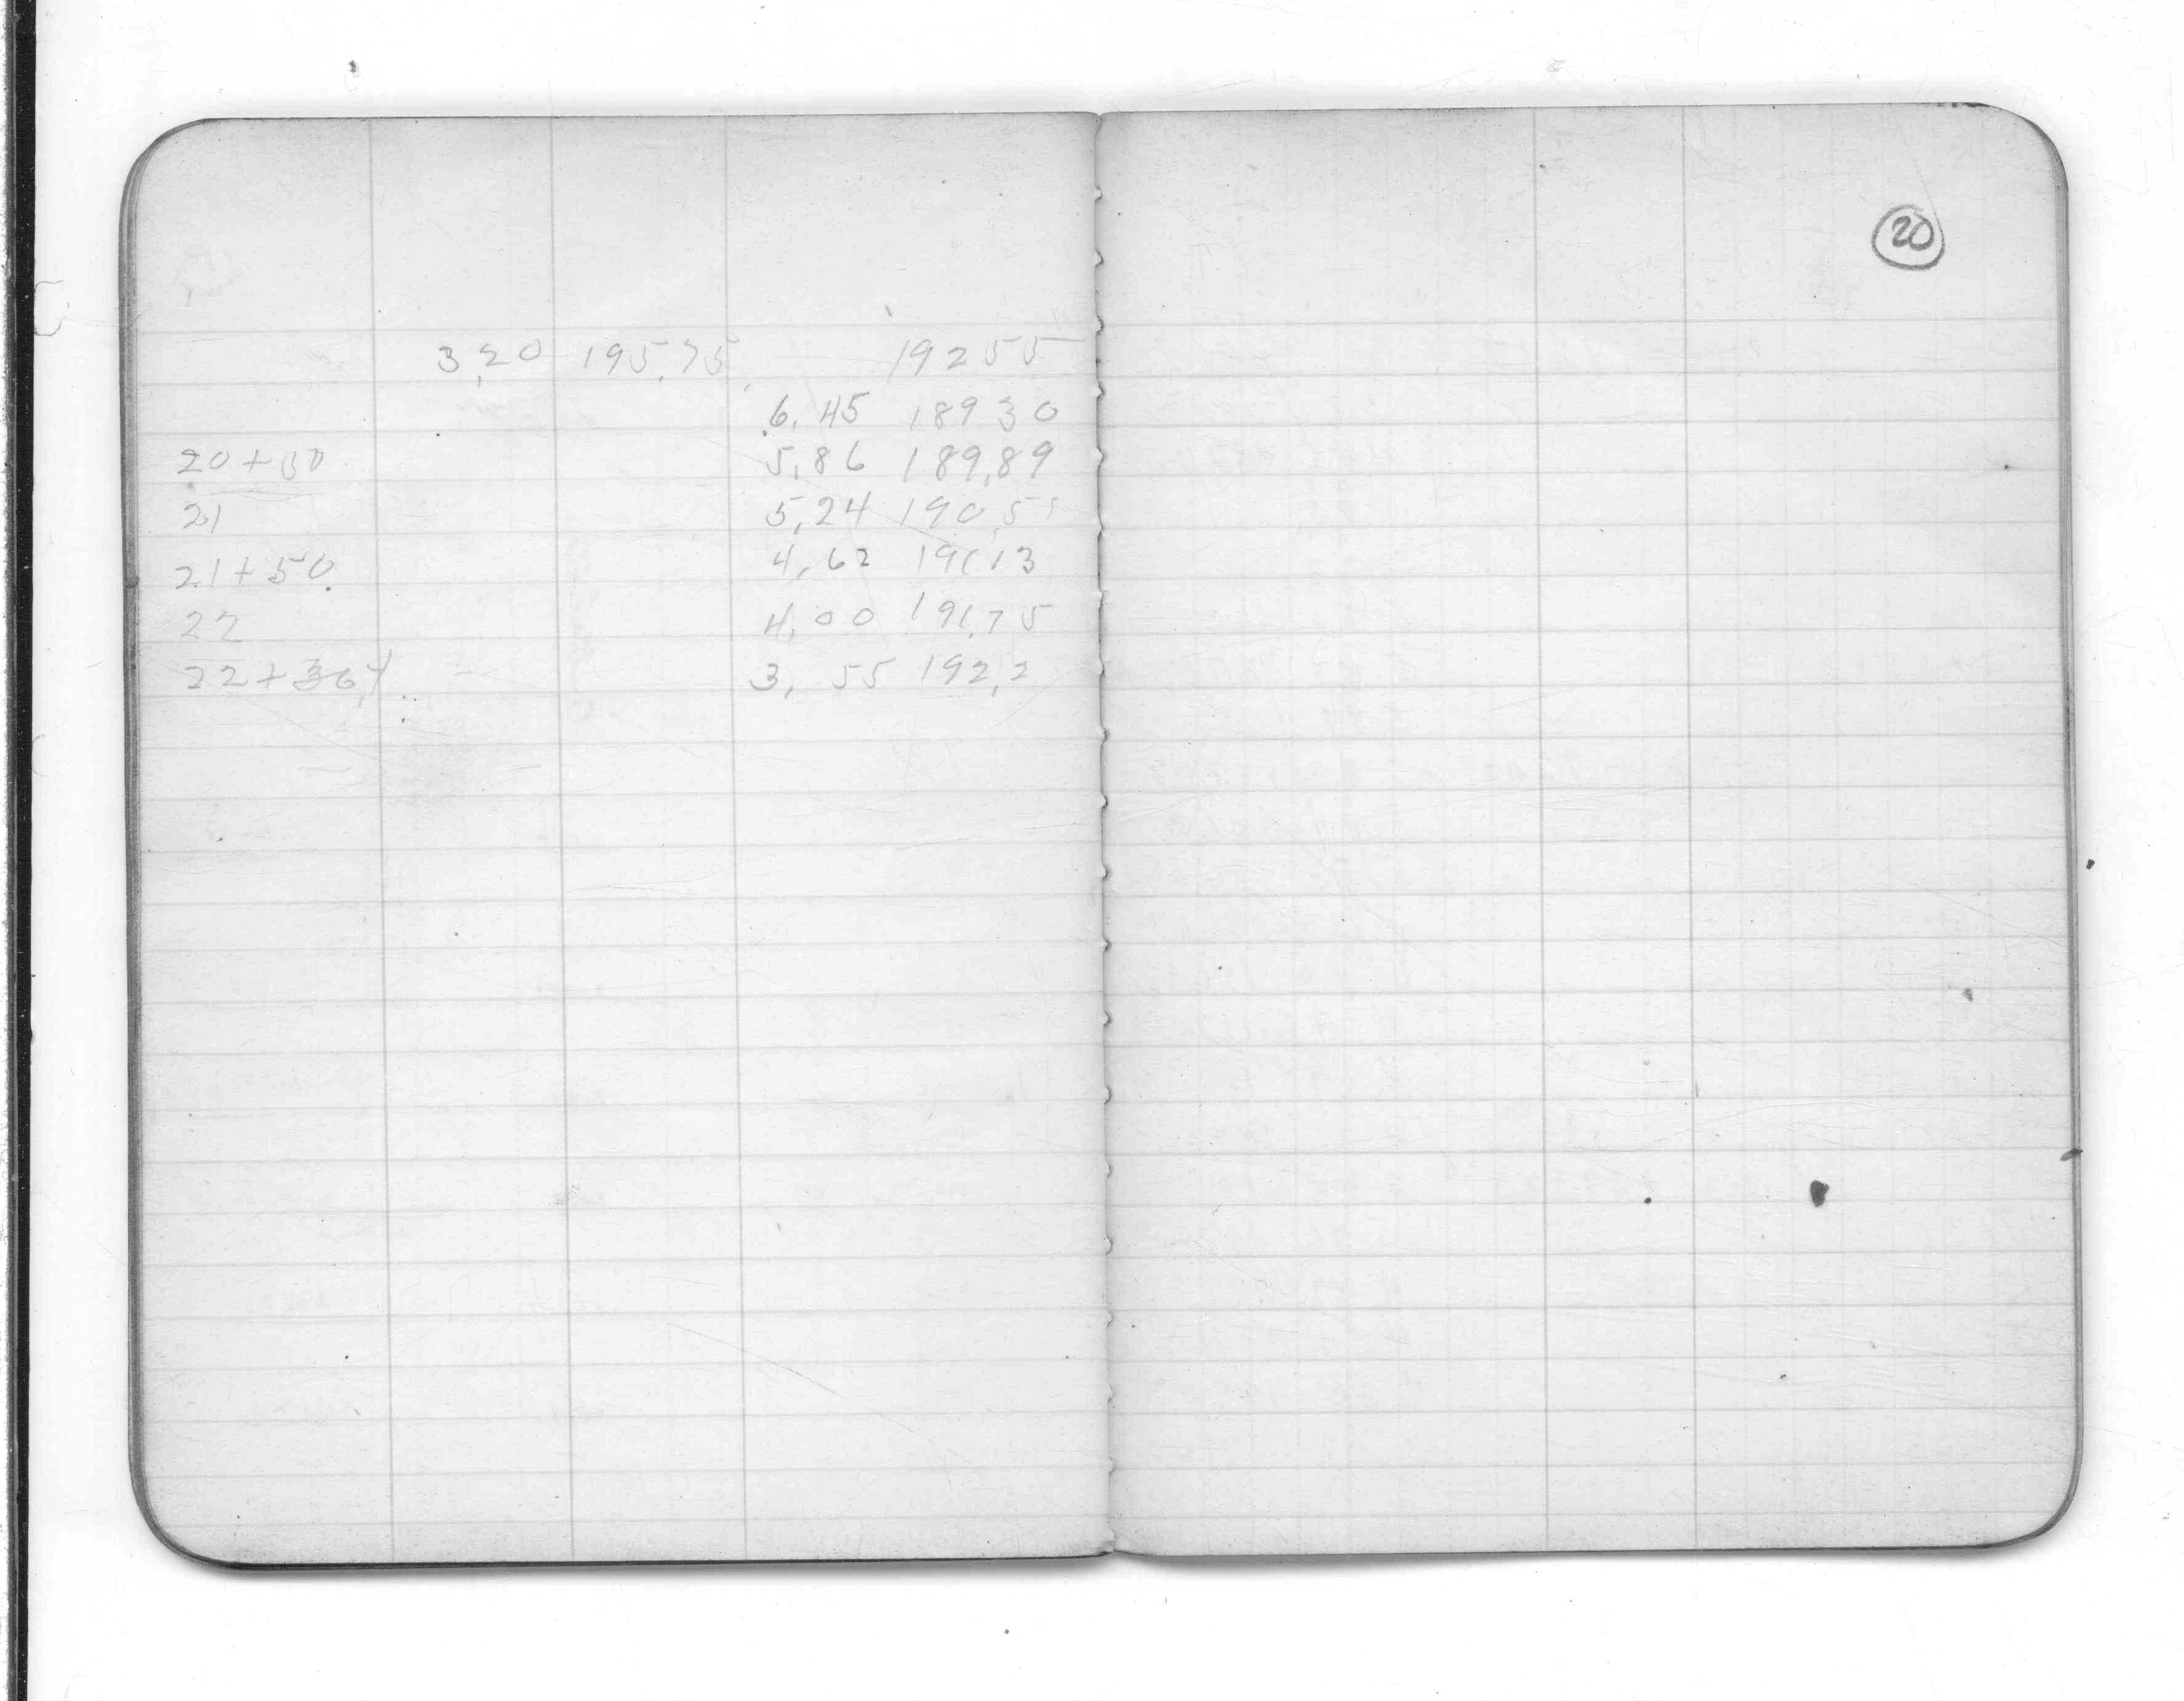 3,20 195.75 19255
6.45 18930
20+50 5,86 189,89
21 5,24 190,51
21+50 4,62 19113
22 4.00 191.75
22+36,4 3, 55 192,2
20